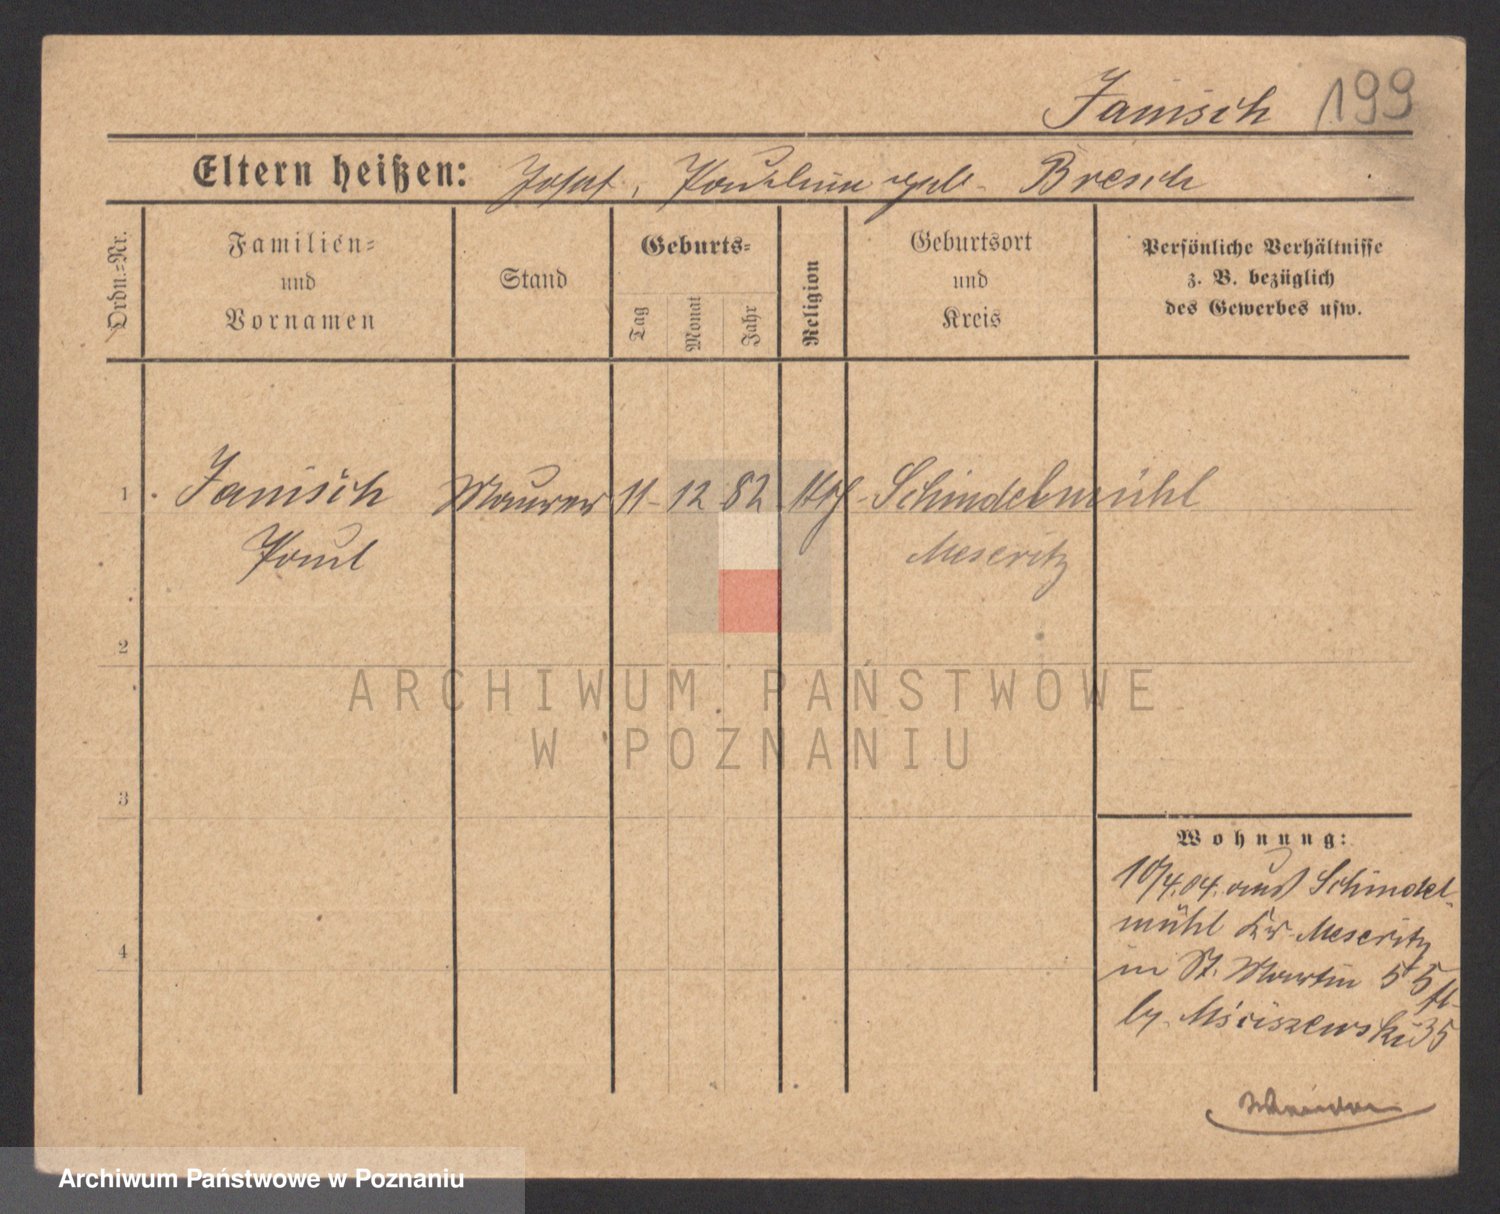 Janisch 199
Eltern heißen: Josef, Pauline geb. Bresch
Ordn.=Nr.
Familien=
und
Vornamen
Stand
Geburts=
Tag
Monat
Jahr
Religion
Geburtsort
und
Kreis
Persönliche Verhältnisse
z. B. bezüglich
des Gewerbes usw.
1 Janisch Maurer 11 12 82 kth Schindelmühl
Paul Meseritz
2
3
4
Wohnung:
10/4.04. aus Schindel-
mühl Kr. Meseritz
in St. Martin 55
by. Mściszewski 35
ARCHIWUM PAŃSTWOWE
W POZNANIU
Archiwum Państwowe w Poznaniu